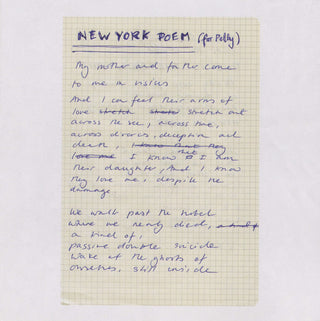 NEW YORK POEM (for Polly)
My mother and father come
to me in visions
And I can feel their arms of
love stretch stretch stretch out
across the sea, across time,
across divorce, deception and
death, I know that they
love me I know that I am
their daughter, And I know
they love me, despite the
damage.
We walk past the hotel
where we nearly died,
a kind of,
passive double suicide
Wake at the ghosts of
ourselves, still inside